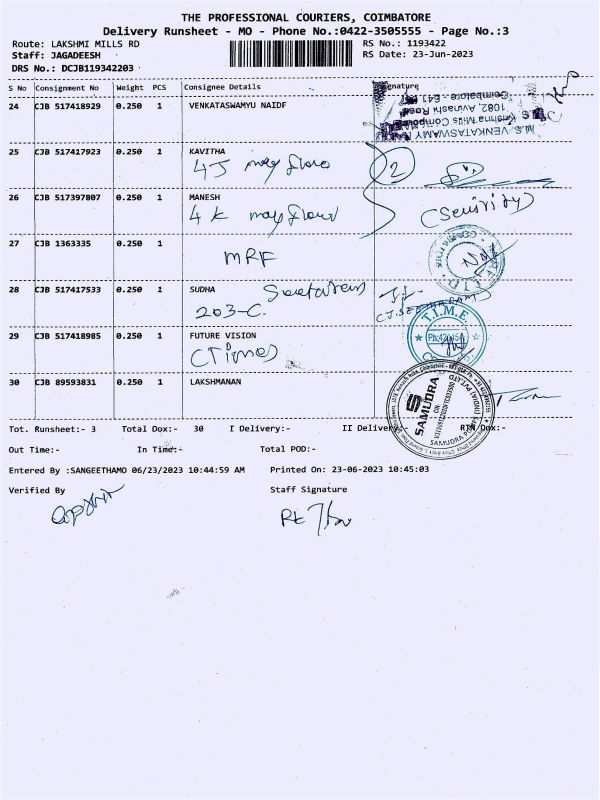 THE PROFESSIONAL COURIERS, COIMBATORE
Delivery Runsheet - MO - Phone No.:0422-3505555 - Page No.:3
Route: LAKSHMI MILLS RD RS No.: 1193422
Staff: JAGADEESH RS Date: 23-Jun-2023
DRS No.: DCJB119342203
S No Consignment No Weight PCS Consignee Details Signature
24 CJB 517418929 0.250 1 VENKATASWAMYU NAIDF
M.S. VENKATASWAMY
1082, Avinashi Road
Coimbatore - 641
25 CJB 517417923 0.250 1 KAVITHA
4J may flowe 2
26 CJB 517397807 0.250 1 MANESH
4 K may flowe (Security)
27 CJB 1363335 0.250 1
MRF
28 CJB 517417533 0.250 1 SUDHA
203-C
29 CJB 517418985 0.250 1 FUTURE VISION
(Time) T.I.M.E
30 CJB 89593831 0.250 1 LAKSHMANAN
SAMUDRA
Tot. Runsheet:- 3 Total Dox:- 30 I Delivery:- II Delivery:- RTN Dox:-
Out Time:- In Time:- Total POD:-
Entered By :SANGEETHAMO 06/23/2023 10:44:59 AM Printed On: 23-06-2023 10:45:03
Verified By Staff Signature